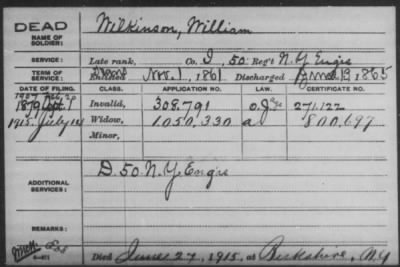 DEAD
NAME OF SOLDIER:
Wilkinson, William
SERVICE:
Late rank, Co. I, 50 Reg't N.Y. Engrs
TERM OF SERVICE:
Enlisted Nov. 1, 1861 Discharged June 13, 1865
DATE OF FILING. CLASS. APPLICATION NO. LAW. CERTIFICATE NO.
1907 Feb. 27
1879 Sept. Invalid, 308.791 271.122
1915 July 14 Widow, 1.050.330 a 800.697
Minor,
ADDITIONAL SERVICES:
D. 50 N.Y. Engrs
REMARKS:
Died June 27, 1915, at Berkshire, N.Y.